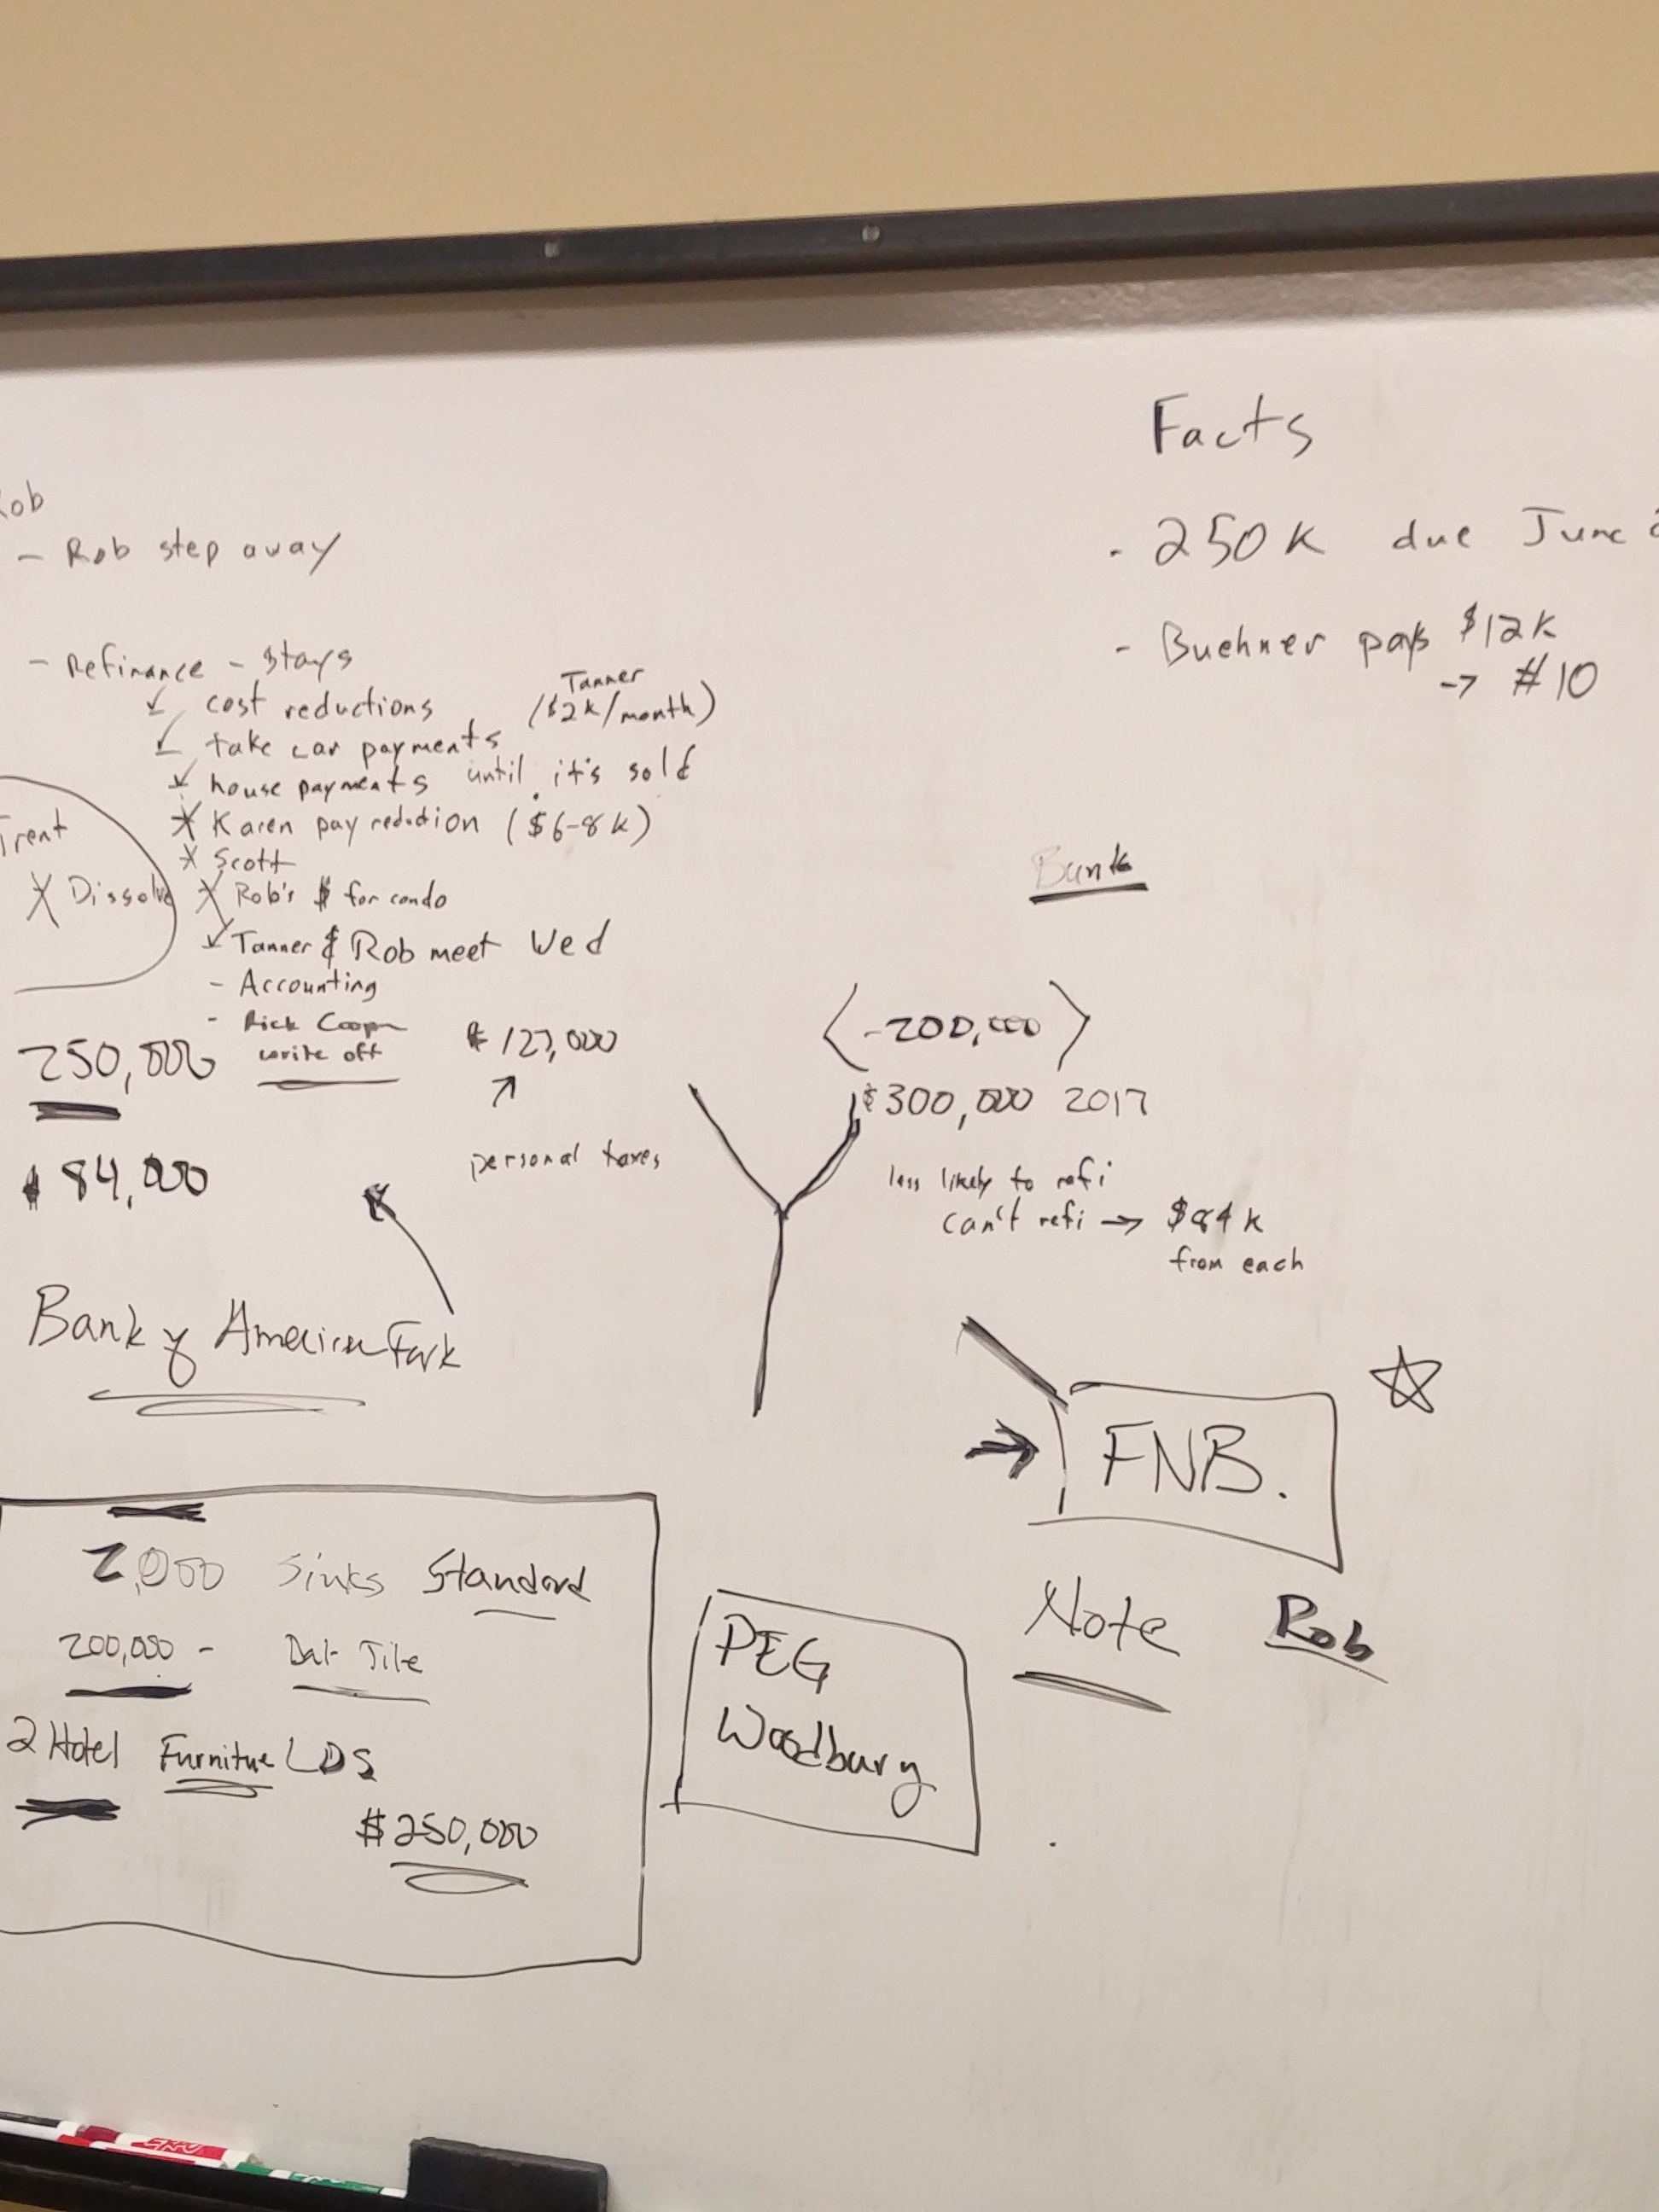 Facts
- 250K due June
- Buehner pays $12K
→ #10
Rob
- Rob step away
- Refinance - stays
✓ cost reductions
Tanner
($2k/month)
✓ take car payments
✓ house payments until it's sold
X Karen pay reduction ($6-8k)
X Scott
X Rob's $ for condo
✓ Tanner & Rob meet Wed
- Accounting
- Rick Cooper
write off
Trent
X Dissolve
250,000
$84,000
$127,000
personal taxes
Bank of American Fork
Bank
<-200,000>
$300,000 2017
less likely to refi
can't refi → $84k
from each
FNB.
Note Rob
2,000 Sinks Standard
200,000 - Dal Tile
2 Hotel Furniture LDS
$250,000
PEG
Woodbury